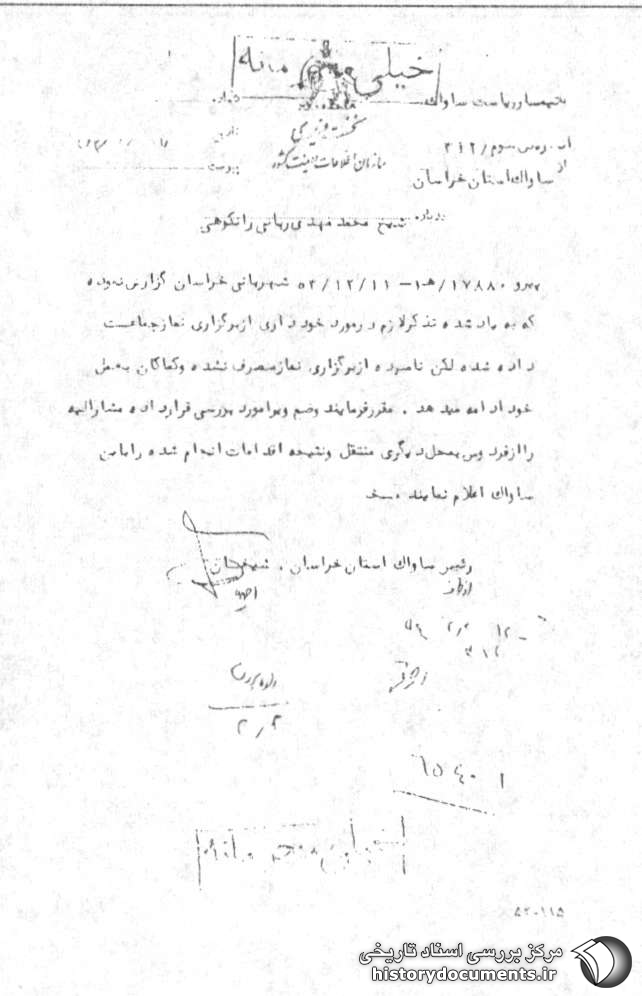 خیلی محرمانه
تیمسار ریاست ساواک شماره
نخست وزیری
اداره کل سوم/ ۳۱۲ تاریخ
سازمان اطلاعات و امنیت کشور
از ساواک استان خراسان پیوست
درباره شیخ محمد مهدی ربانی رانکوهی
پیرو ۱۷۸۸۰/هـ۱ - ۵۲/۱۲/۱۱ شهربانی خراسان گزارش نموده
که به یاد شده تذکر لازم در مورد خودداری از برگزاری نماز جماعت
داده شده لکن نامبرده از برگزاری نماز منصرف نشده و کماکان بعمل
خود ادامه میدهد . مقرر فرمایند وضع ویرا مورد بررسی قرار داده مشارالیه
را از فردوس بمحل دیگری منتقل و نتیجه اقدامات انجام شده را باین
ساواک اعلام نمایند
رئیس ساواک استان خراسان . شیخان
از طرف
۳۱۲
۲/۲
خیلی محرمانه
۵۲۰۱۱۵
مرکز بررسی اسناد تاریخی
historydocuments.ir